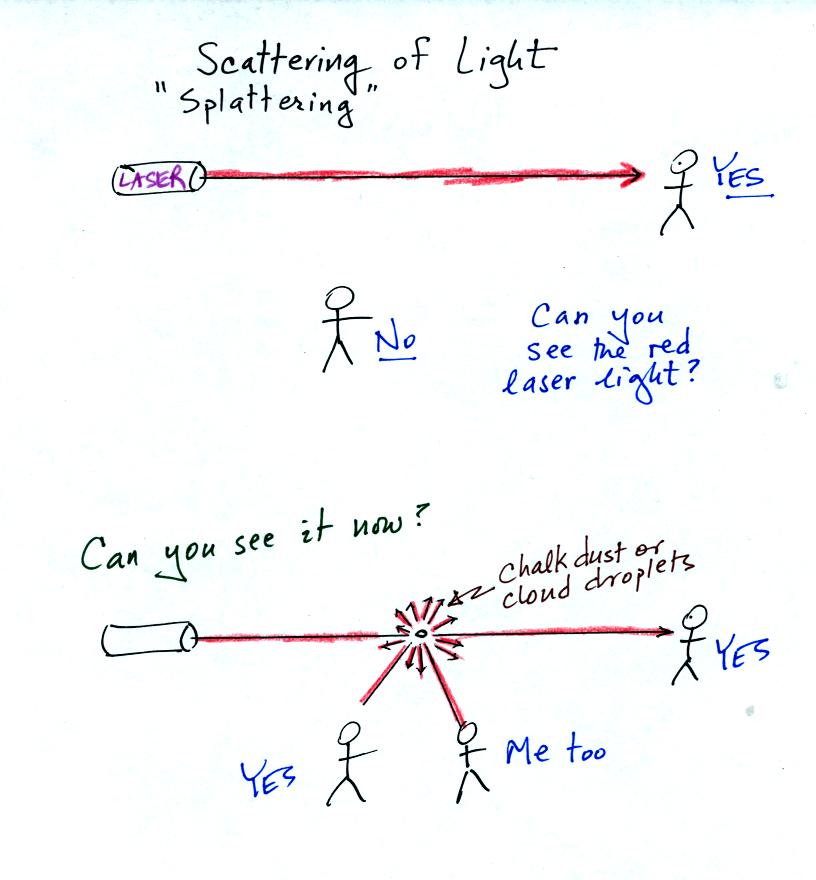 Scattering of Light
"Splattering"
LASER
YES
No
Can you
see the red
laser light?
Can you see it now?
Chalk dust or
cloud droplets
YES
YES
Me too